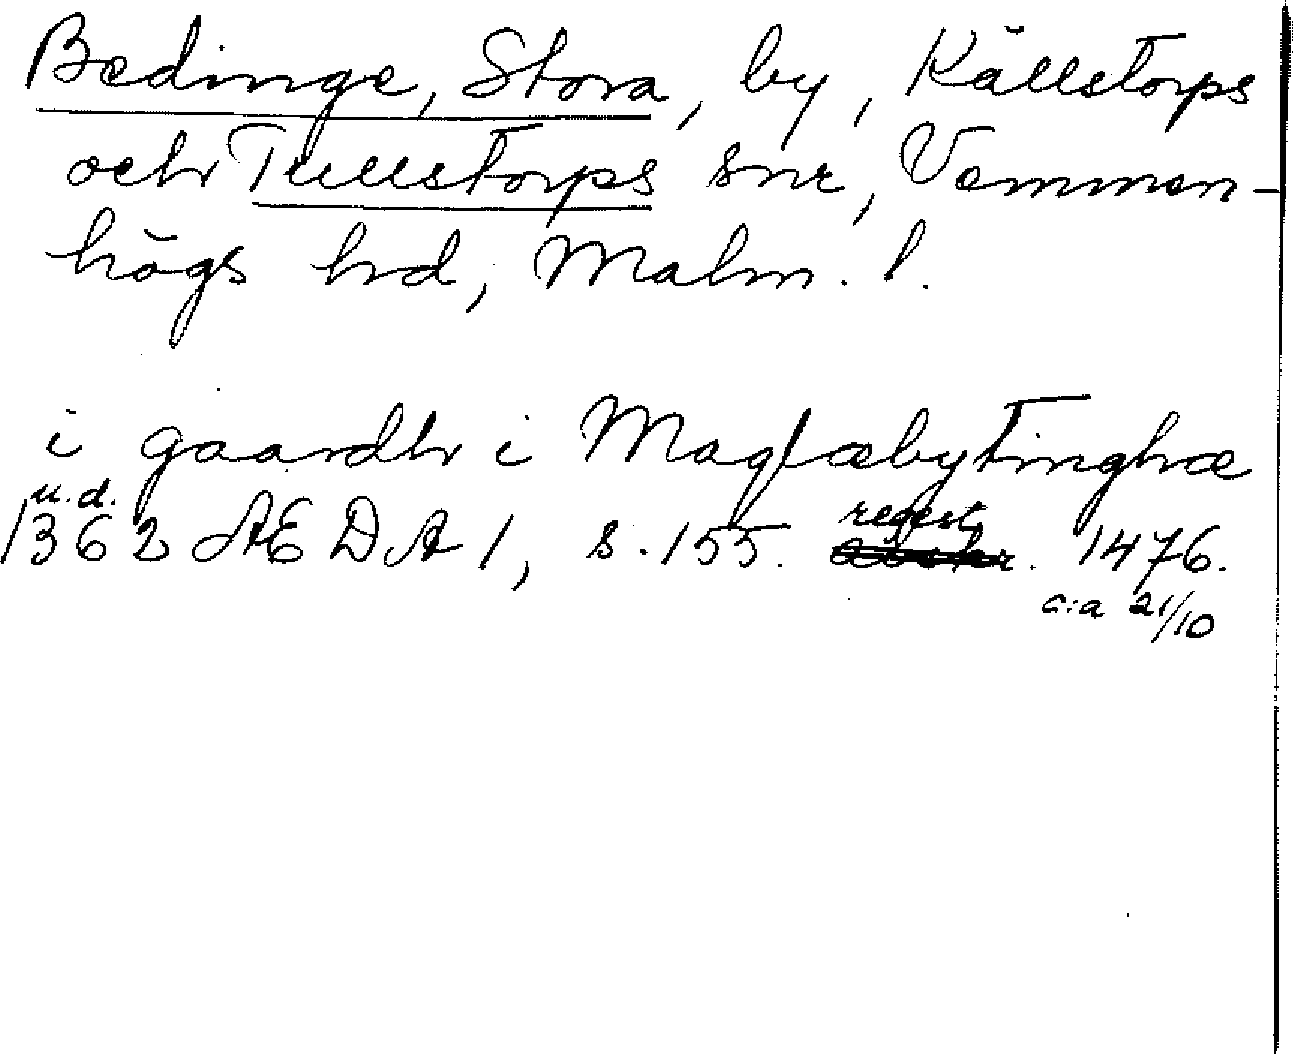 Bedinge, Stora, by, Källstorps
och Tullstorps snr, Vemmen-
högs hd, Malm. l.
i gaardh i Maglæbytinghæ
u.d.
1362 ÆDA 1, s. 155. regest. 1476.
c:a 21/10